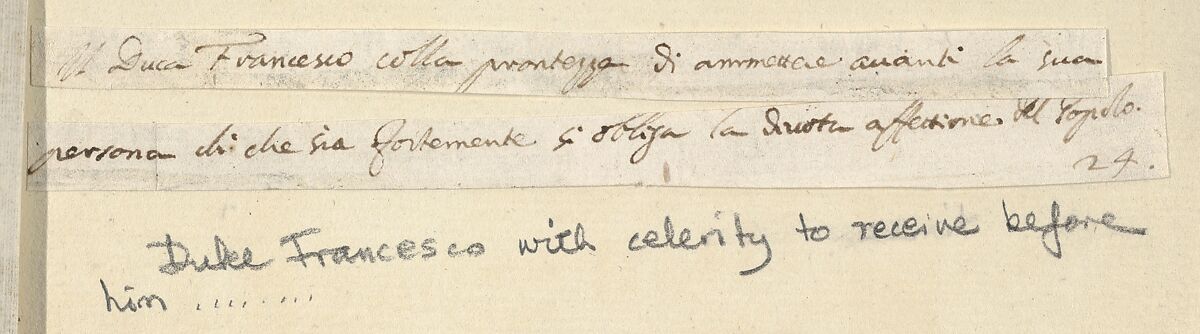 Il Duca Francesco colla prontezza di ammettere auanti la sua
persona chi che sia fortemente si obliga la diuota affettione del Popolo.
24.
Duke Francesco with celerity to receive before
him ........